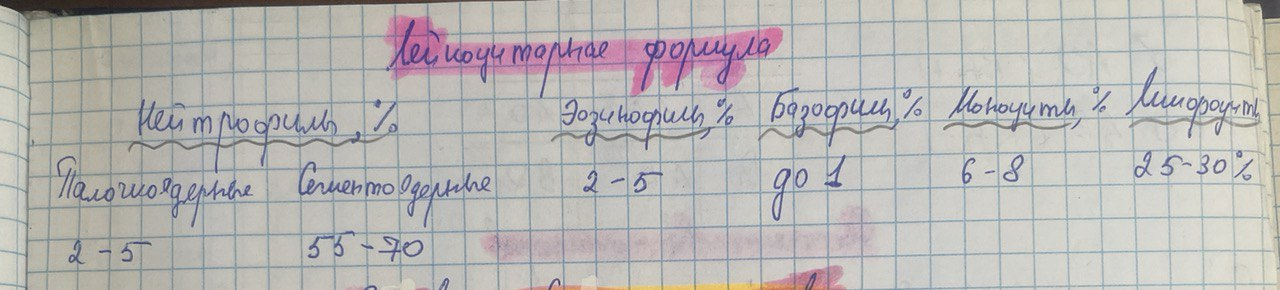 Лейкоцитарная формула
Нейтрофилы, % Эозинофилы, % Базофилы, % Моноциты, % Лимфоциты
Палочкоядерные Сегментоядерные 2-5 до 1 6-8 25-30%
2-5 55-70